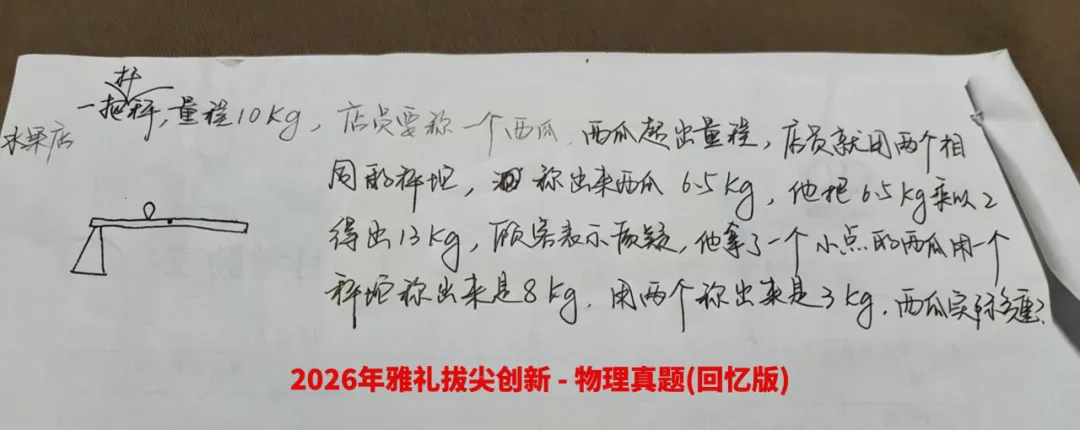 杆
一把秤，量程10kg，店员要称一个西瓜，西瓜超出量程，店员就用两个相
水果店
同的秤坨，称出来西瓜6.5kg，他把6.5kg乘以2
得出13kg，顾客表示质疑，他拿了一个小点的西瓜用一个
秤坨称出来是8kg，用两个称出来是3kg，西瓜实际多重？
2026年雅礼拔尖创新 - 物理真题(回忆版)